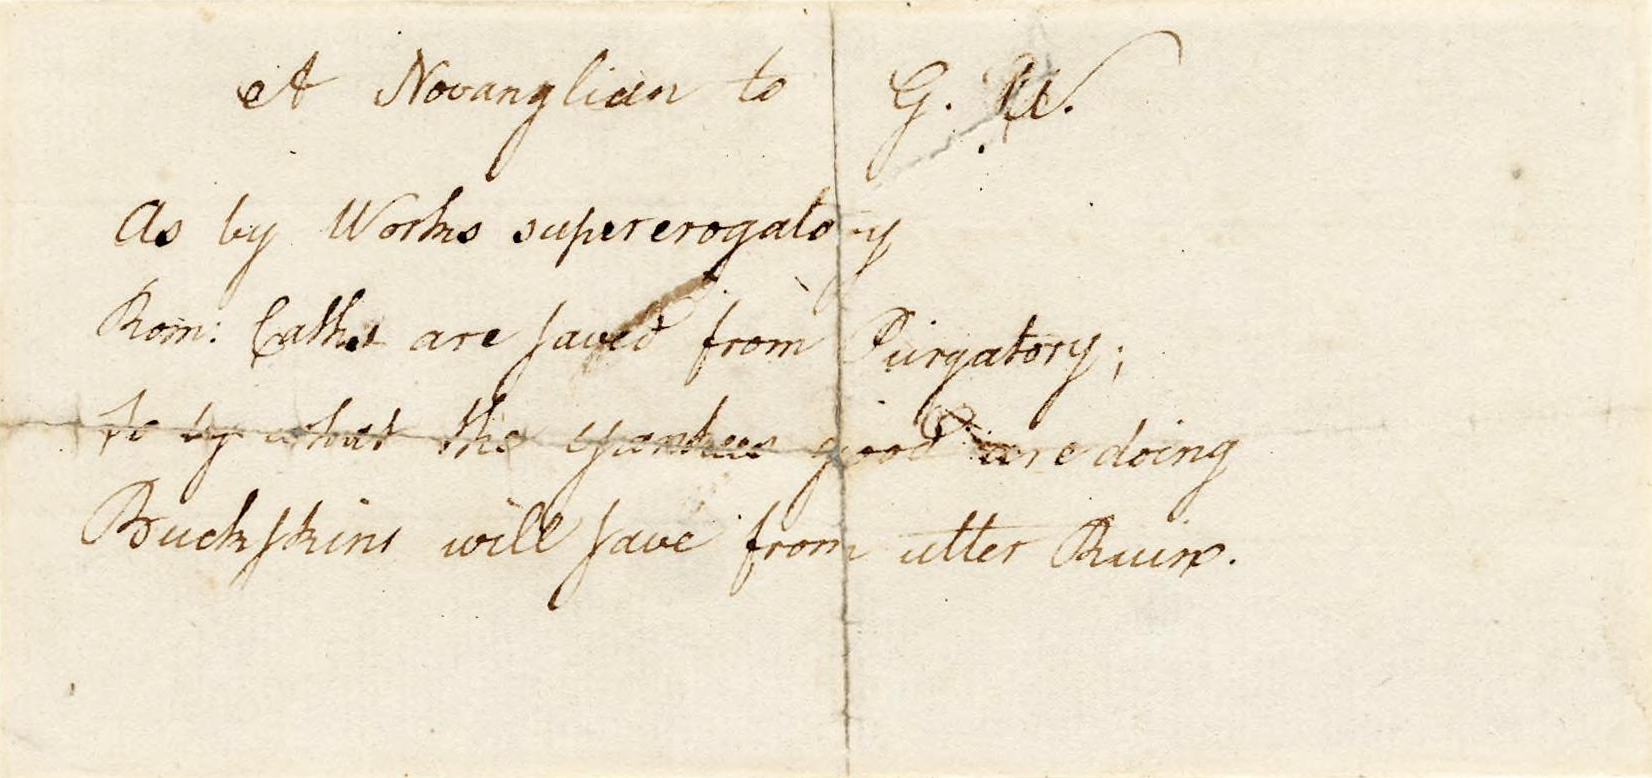 A Novanglian to G. W.
As by Works supererogatory
Rom: Cathˢ are saved from Purgatory;
So by what the Yankees good are doing
Buckskins will save from utter Ruin.